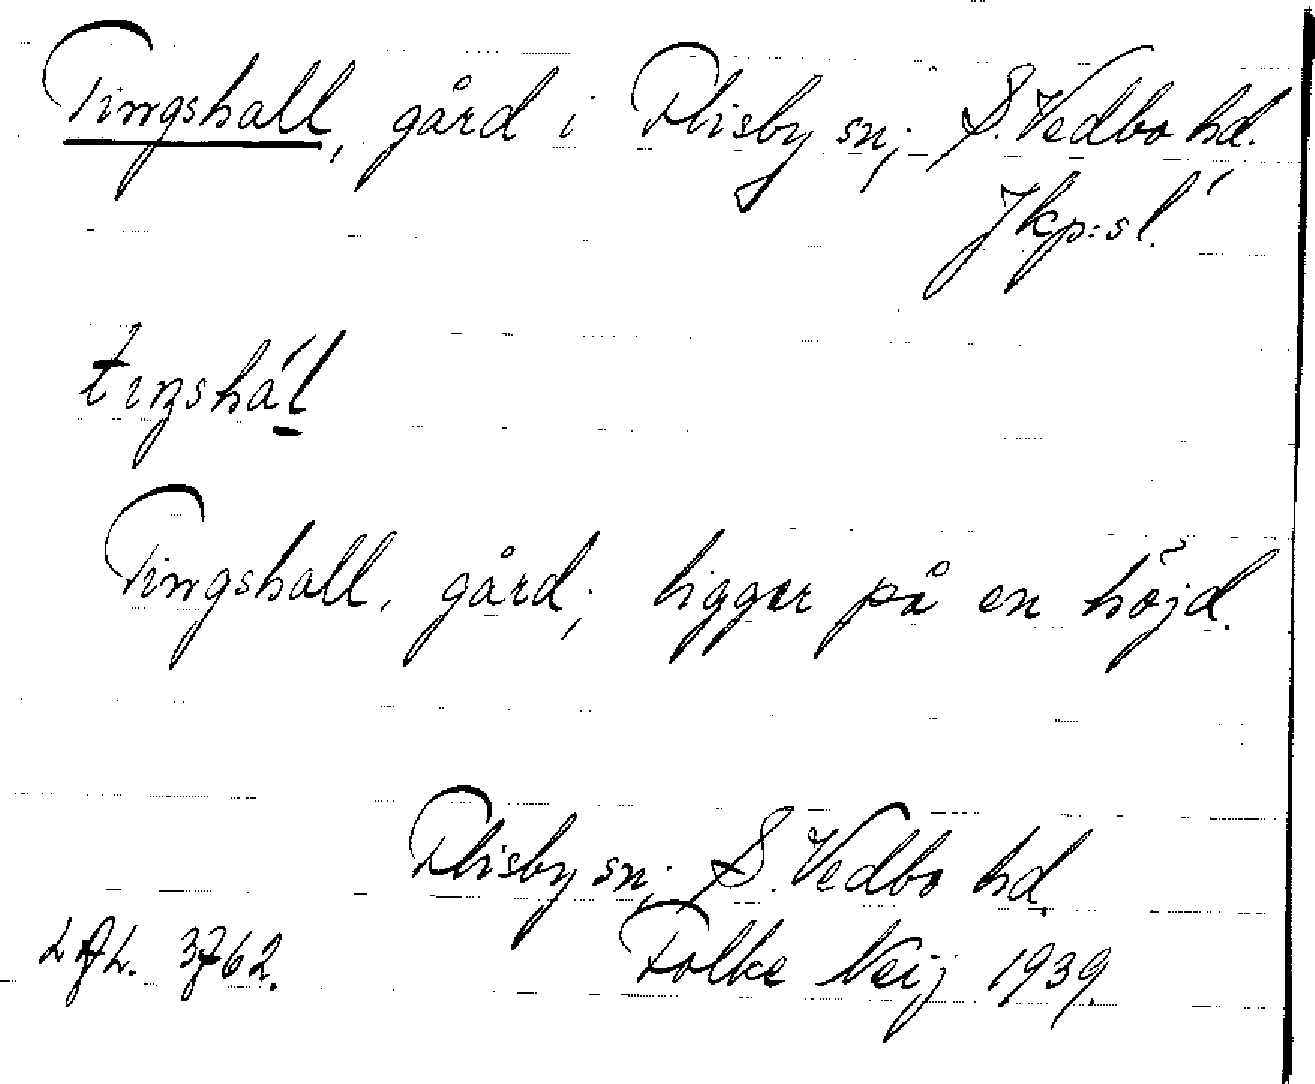 Tingshall, gård i Flisby sn; S. Vedbo hd.
Jkp:s l.
tiŋshál
Tingshall, gård; ligger på en höjd.
Flisby sn; S. Vedbo hd.
3762. Folke Neij 1939.